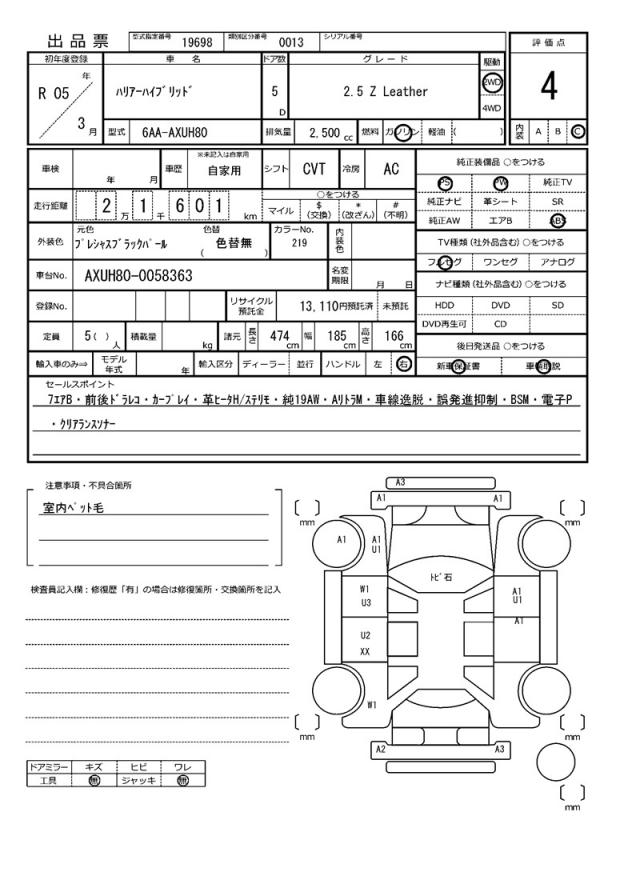 出品票 型式指定番号 19698 類別区分番号 0013 シリアル番号
評価点
初年度登録 車名 ドア数 グレード 駆動
R 05 年 ハリアーハイブリッド 5 D 2.5 Z Leather 2WD 4
3 月 4WD
型式 6AA-AXUH80 排気量 2,500 cc 燃料 ガソリン 軽油 ( ) 内装 A B C
車検 年 月 車歴 ※未記入は自家用 自家用 シフト CVT 冷房 AC
走行距離 2 万 1 千 6 0 1 km ○をつける
マイル $(交換) *(改ざん) #(不明)
外装色 元色 プレシャスブラックパール 色替 色替無 ( ) カラーNo. 219 内装色
車台No. AXUH80-0058363 名変期限 月 日
登録No. リサイクル預託金 13,110円預託済 未預託
定員 5( )人 積載量 kg 諸元 長さ 474 cm 幅 185 cm 高さ 166 cm
輸入車のみ⇒ モデル年式 年 輸入区分 ディーラー 並行 ハンドル 左 右
純正装備品 ○をつける
PS PW 純正TV
純正ナビ 革シート SR
純正AW エアB ABS
TV種類 (社外品含む) ○をつける
フルセグ ワンセグ アナログ
ナビ種類 (社外品含む) ○をつける
HDD DVD SD
DVD再生可 CD
後日発送品 ○をつける
新車保証書 車輌取説
セールスポイント
7エアB・前後ドラレコ・カープレイ・革ヒータH/ステリモ・純19AW・AリトラM・車線逸脱・誤発進抑制・BSM・電子P
・クリアランスソナー
注意事項・不具合箇所
室内ペット毛
検査員記入欄：修復歴「有」の場合は修復箇所・交換箇所を記入
ドアミラー キズ ヒビ ワレ
工具 無 ジャッキ 無
A3
A1 A1
mm mm
A1 A1 U1
トビ石
W1 U3 A1 U1
A1
U2 XX
W1
mm mm
A2 A3
mm